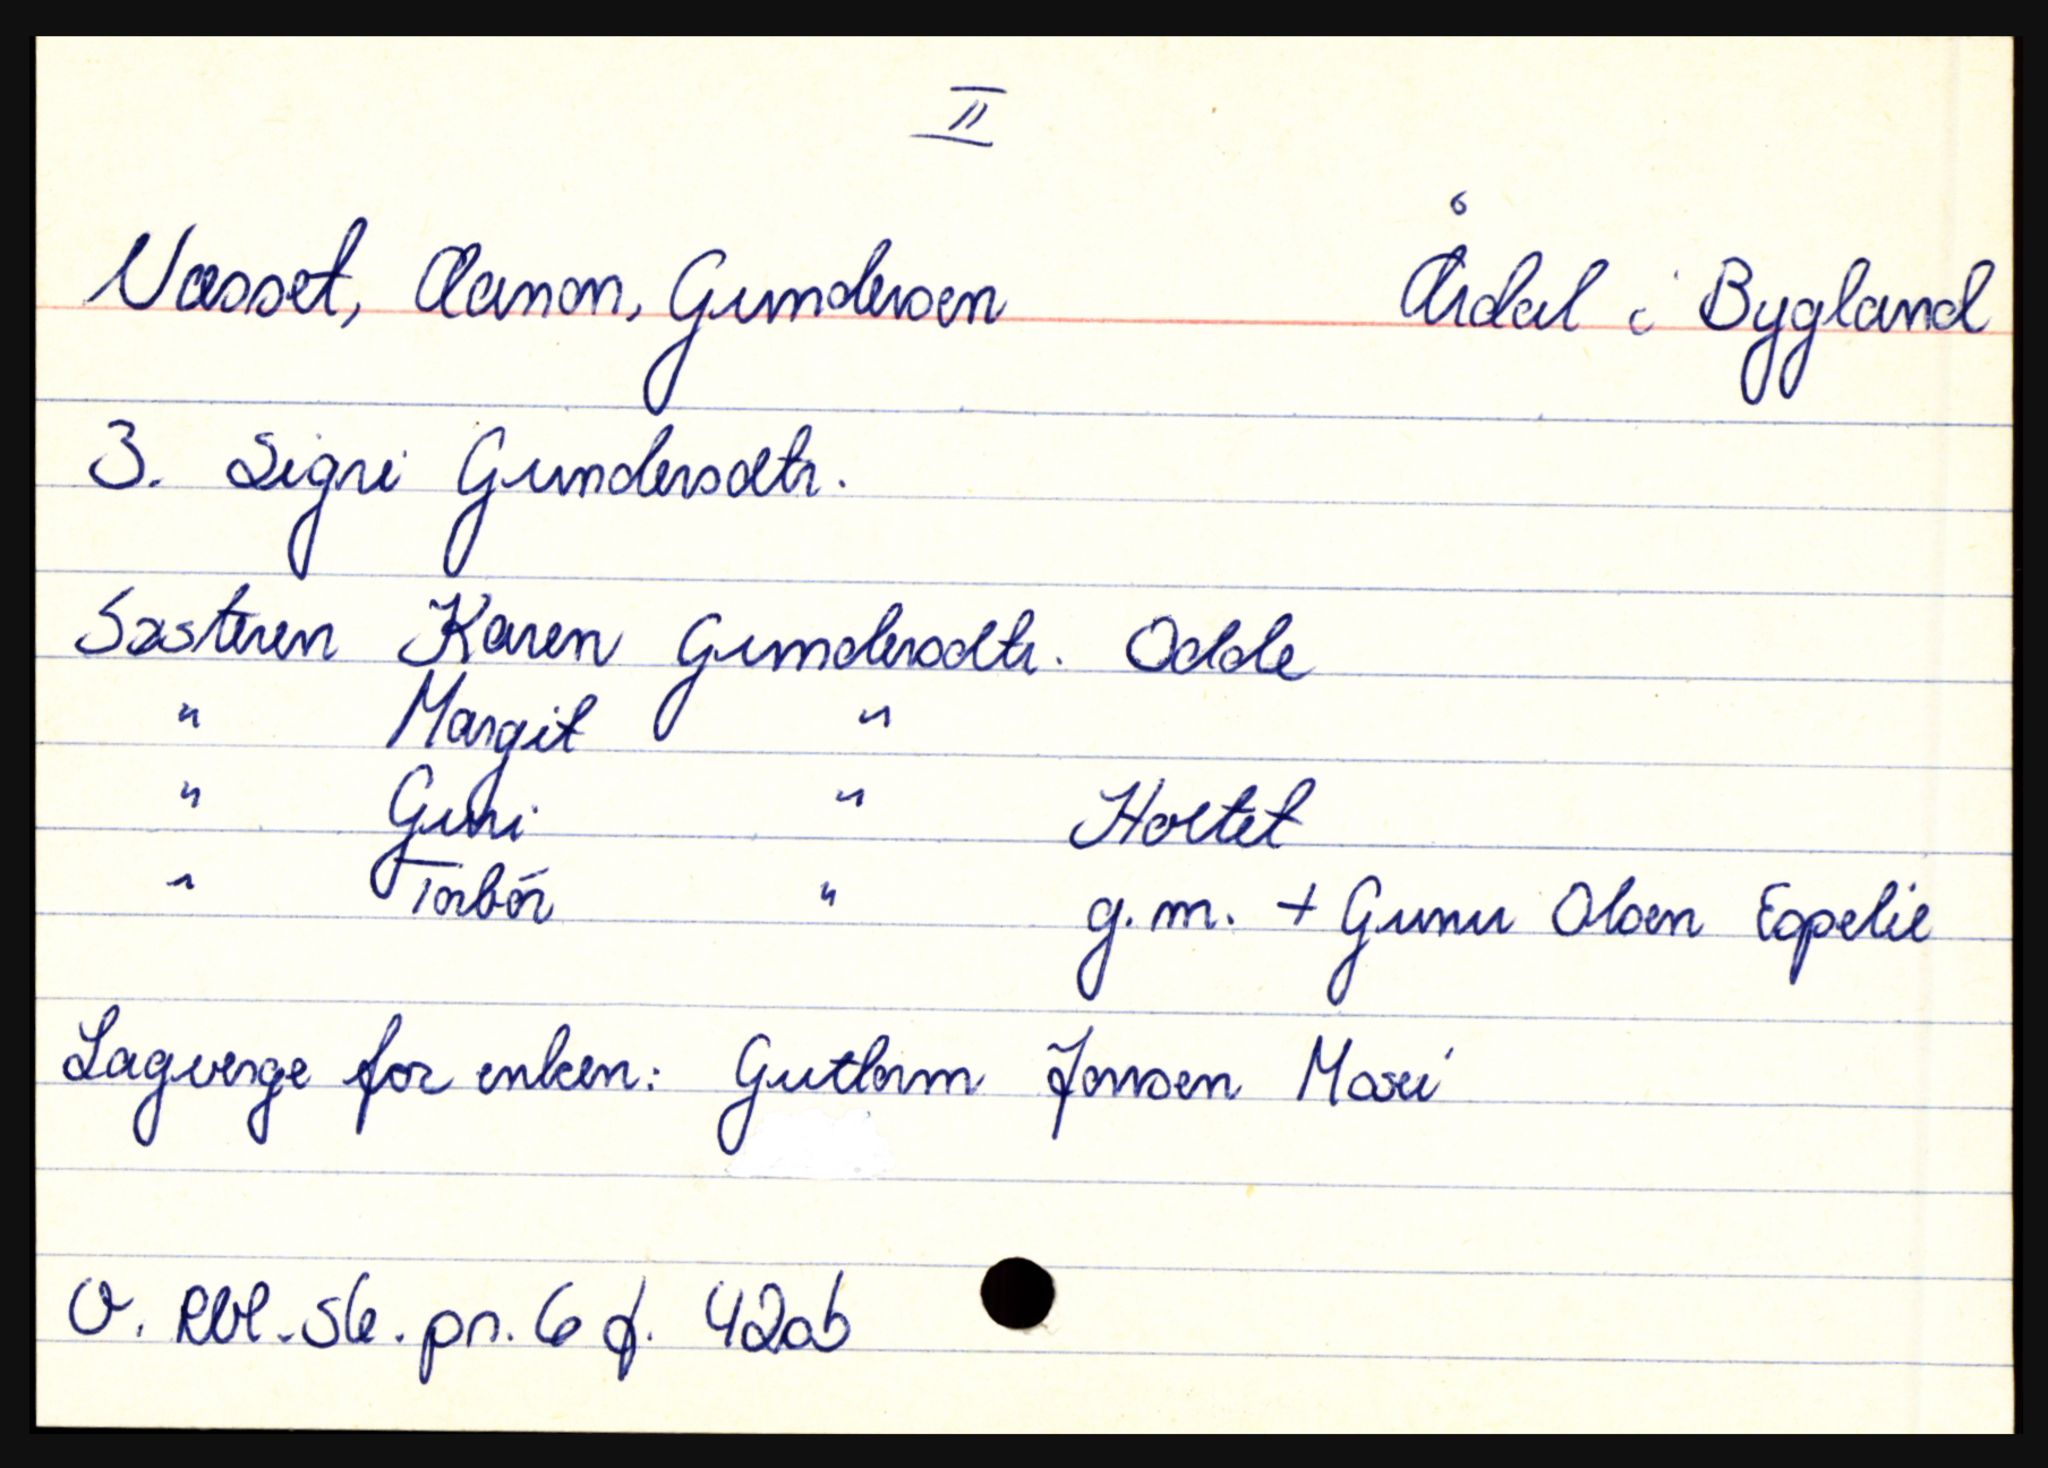 II
Næsset, Aanon, Gundersen Årdal i Bygland
3. Sigri Gundersdtr.
Søsteren Karen Gundersdtr. Odde
" Margit "
" Guri " Hortet
" Torbör " g.m. + Gunu Olsen Espelie
Lagverge for enken: Gutlorm Jonsen Mosei
O. Rbl. Sk. pr. 6 f. 42ab